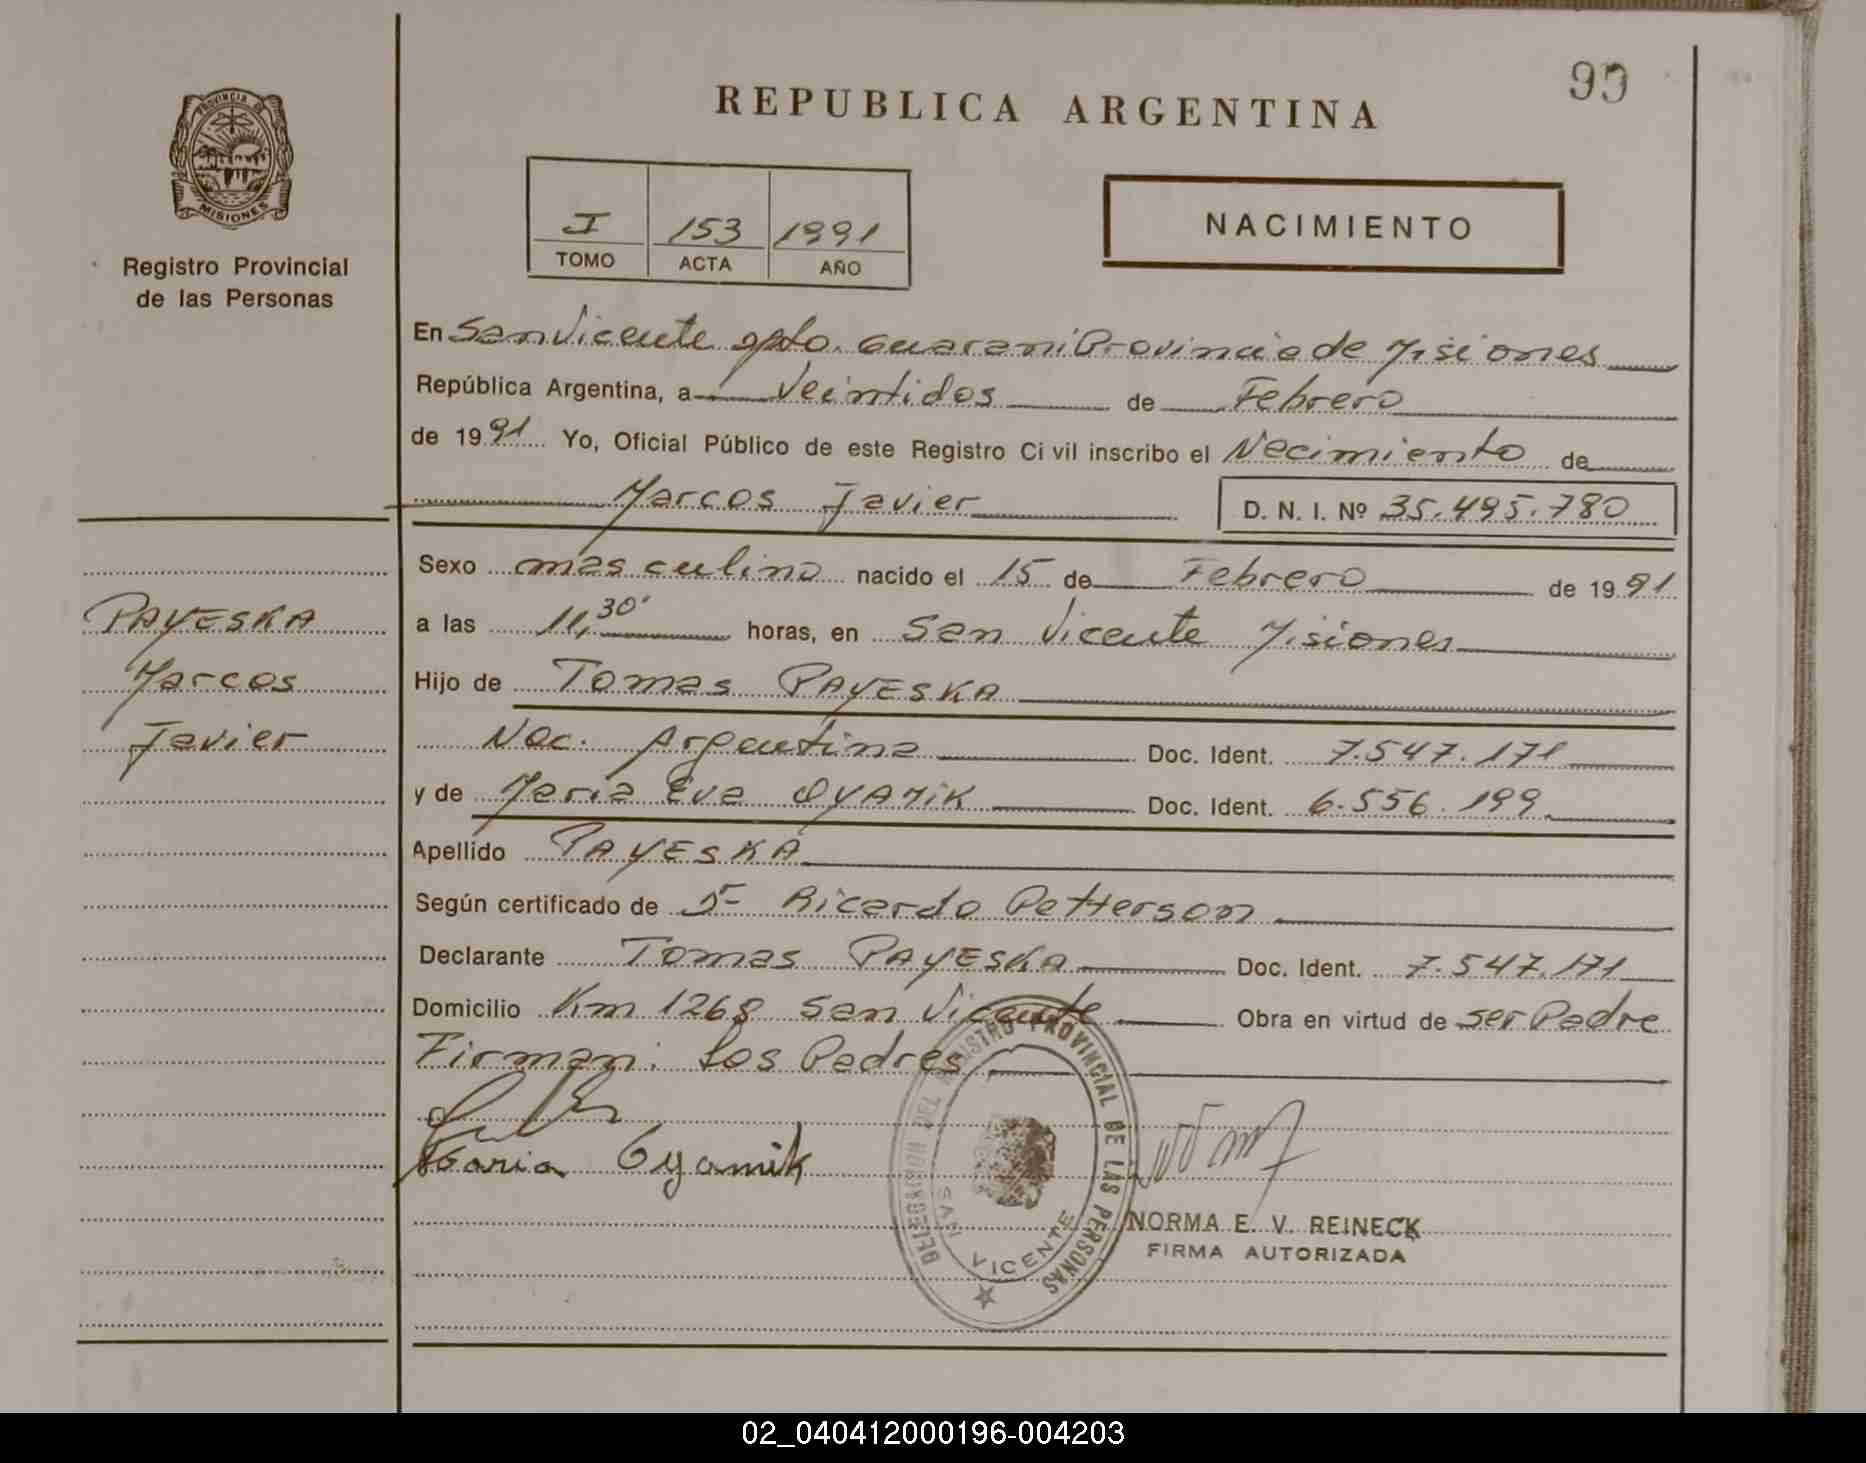 99
REPUBLICA ARGENTINA
PROVINCIA DE
MISIONES
Registro Provincial
de las Personas
I 153 1991
TOMO ACTA AÑO
NACIMIENTO
En San Vicente Dpto. Guarani Provincia de Misiones
República Argentina, a Veintidos de Febrero
de 1991 Yo, Oficial Público de este Registro Civil inscribo el Nacimiento de
Marcos Javier D. N. I. Nº 35.495.780
Sexo masculino nacido el 15 de Febrero de 1991
a las 11,30' horas, en San Vicente Misiones
Hijo de Tomas PAYESKA
Nac. Argentina Doc. Ident. 7.547.171
y de Maria Eva OYAMiK Doc. Ident. 6.556.199
Apellido PAYESKA
Según certificado de Dr Ricardo Petterson
Declarante Tomas PAYESKA Doc. Ident. 7.547.171
Domicilio Km 1268 San Vicente Obra en virtud de ser Padre
Firman: Los Padres
Maria Oyamik
PAYESKA
Marcos
Javier
DELEGACION DEL REGISTRO PROVINCIAL DE LAS PERSONAS
SAN VICENTE
NORMA E. V. REINECK
FIRMA AUTORIZADA
02_040412000196-004203